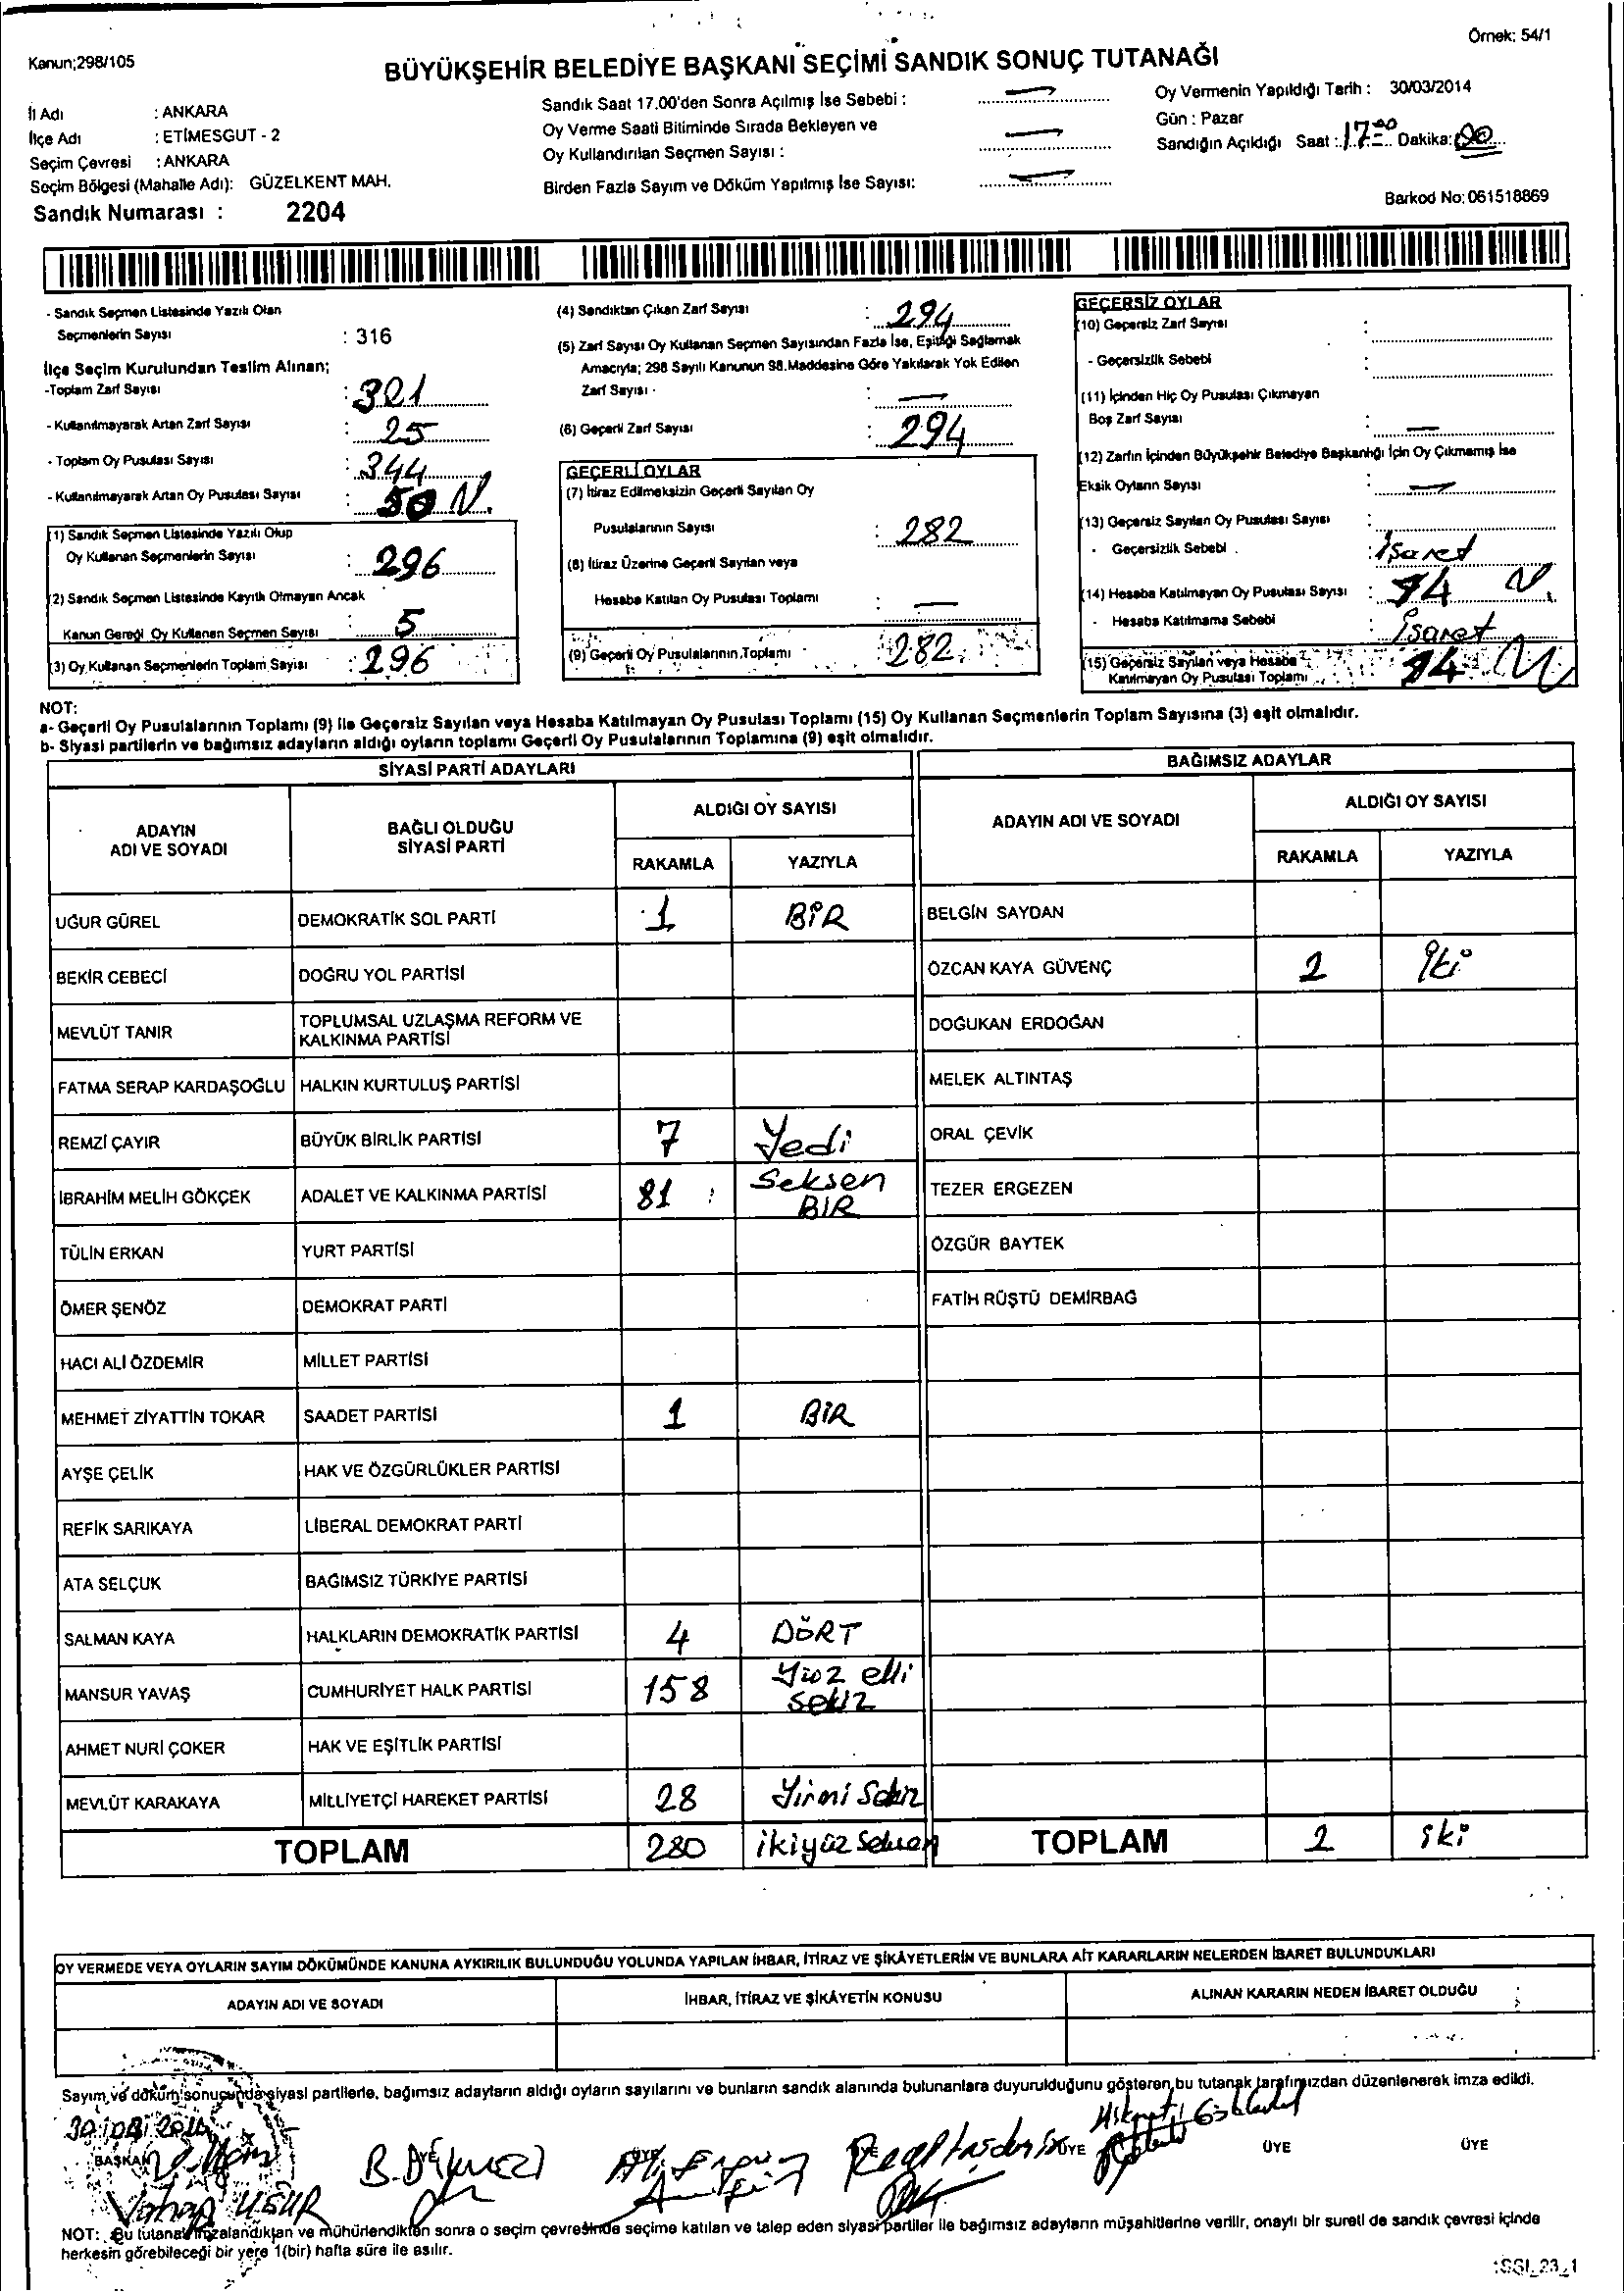 Örnek: 54/1
Kanun;298/105
BÜYÜKŞEHİR BELEDİYE BAŞKANI SEÇİMİ SANDIK SONUÇ TUTANAĞI
İl Adı : ANKARA
İlçe Adı : ETİMESGUT - 2
Seçim Çevresi : ANKARA
Seçim Bölgesi (Mahalle Adı): GÜZELKENT MAH.
Sandık Numarası : 2204
Sandık Saat 17.00'den Sonra Açılmış İse Sebebi : —
Oy Verme Saati Bitiminde Sırada Bekleyen ve
Oy Kullandırılan Seçmen Sayısı : —
Birden Fazla Sayım ve Döküm Yapılmış İse Sayısı: —
Oy Vermenin Yapıldığı Tarih : 30/03/2014
Gün : Pazar
Sandığın Açıldığı Saat : 17 00 Dakika: 00
Barkod No: 061518869
- Sandık Seçmen Listesinde Yazılı Olan
Seçmenlerin Sayısı : 316
İlçe Seçim Kurulundan Teslim Alınan;
-Toplam Zarf Sayısı : 321
- Kullanılmayarak Artan Zarf Sayısı : 25
- Toplam Oy Pusulası Sayısı : 344
- Kullanılmayarak Artan Oy Pusulası Sayısı : 50
(1) Sandık Seçmen Listesinde Yazılı Olup
Oy Kullanan Seçmenlerin Sayısı : 296
(2) Sandık Seçmen Listesinde Kayıtlı Olmayan Ancak
Kanun Gereği Oy Kullanan Seçmen Sayısı : 5
(3) Oy Kullanan Seçmenlerin Toplam Sayısı : 296
(4) Sandıktan Çıkan Zarf Sayısı : 294
(5) Zarf Sayısı Oy Kullanan Seçmen Sayısından Fazla İse, Eşitliği Sağlamak
Amacıyla; 298 Sayılı Kanunun 98.Maddesine Göre Yakılarak Yok Edilen
Zarf Sayısı : —
(6) Geçerli Zarf Sayısı : 294
GEÇERLİ OYLAR
(7) İtiraz Edilmeksizin Geçerli Sayılan Oy
Pusulalarının Sayısı : 282
(8) İtiraz Üzerine Geçerli Sayılan veya
Hesaba Katılan Oy Pusulası Toplamı : —
(9) Geçerli Oy Pusulalarının Toplamı : 282
GEÇERSİZ OYLAR
(10) Geçersiz Zarf Sayısı :
- Geçersizlik Sebebi :
(11) İçinden Hiç Oy Pusulası Çıkmayan
Boş Zarf Sayısı : —
(12) Zarfın İçinden Büyükşehir Belediye Başkanlığı İçin Oy Çıkmamış İse
Eksik Oyların Sayısı : —
(13) Geçersiz Sayılan Oy Pusulası Sayısı :
- Geçersizlik Sebebi : İşaret
(14) Hesaba Katılmayan Oy Pusulası Sayısı : 14
- Hesaba Katılmama Sebebi : İşaret
(15) Geçersiz Sayılan veya Hesaba
Katılmayan Oy Pusulası Toplamı : 14
NOT:
a- Geçerli Oy Pusulalarının Toplamı (9) ile Geçersiz Sayılan veya Hesaba Katılmayan Oy Pusulası Toplamı (15) Oy Kullanan Seçmenlerin Toplam Sayısına (3) eşit olmalıdır.
b- Siyasi partilerin ve bağımsız adayların aldığı oyların toplamı Geçerli Oy Pusulalarının Toplamına (9) eşit olmalıdır.
SİYASİ PARTİ ADAYLARI
ADAYIN ADI VE SOYADI BAĞLI OLDUĞU SİYASİ PARTİ ALDIĞI OY SAYISI
RAKAMLA YAZIYLA
UĞUR GÜREL DEMOKRATİK SOL PARTİ 1 BİR
BEKİR CEBECİ DOĞRU YOL PARTİSİ
MEVLÜT TANIR TOPLUMSAL UZLAŞMA REFORM VE KALKINMA PARTİSİ
FATMA SERAP KARDAŞOĞLU HALKIN KURTULUŞ PARTİSİ
REMZİ ÇAYIR BÜYÜK BİRLİK PARTİSİ 7 Yedi
İBRAHİM MELİH GÖKÇEK ADALET VE KALKINMA PARTİSİ 81 Seksen BİR
TÜLİN ERKAN YURT PARTİSİ
ÖMER ŞENÖZ DEMOKRAT PARTİ
HACI ALİ ÖZDEMİR MİLLET PARTİSİ
MEHMET ZİYATTİN TOKAR SAADET PARTİSİ 1 BİR
AYŞE ÇELİK HAK VE ÖZGÜRLÜKLER PARTİSİ
REFİK SARIKAYA LİBERAL DEMOKRAT PARTİ
ATA SELÇUK BAĞIMSIZ TÜRKİYE PARTİSİ
SALMAN KAYA HALKLARIN DEMOKRATİK PARTİSİ 4 DÖRT
MANSUR YAVAŞ CUMHURİYET HALK PARTİSİ 158 Yüz elli sekiz
AHMET NURİ ÇOKER HAK VE EŞİTLİK PARTİSİ
MEVLÜT KARAKAYA MİLLİYETÇİ HAREKET PARTİSİ 28 Yirmi Sekiz
TOPLAM 280 ikiyüz Seksen
BAĞIMSIZ ADAYLAR
ADAYIN ADI VE SOYADI ALDIĞI OY SAYISI
RAKAMLA YAZIYLA
BELGİN SAYDAN
ÖZCAN KAYA GÜVENÇ 2 İki
DOĞUKAN ERDOĞAN
MELEK ALTINTAŞ
ORAL ÇEVİK
TEZER ERGEZEN
ÖZGÜR BAYTEK
FATİH RÜŞTÜ DEMİRBAĞ
TOPLAM 2 iki
OY VERMEDE VEYA OYLARIN SAYIM DÖKÜMÜNDE KANUNA AYKIRILIK BULUNDUĞU YOLUNDA YAPILAN İHBAR, İTİRAZ VE ŞİKÂYETLERİN VE BUNLARA AİT KARARLARIN NELERDEN İBARET BULUNDUKLARI
ADAYIN ADI VE SOYADI İHBAR, İTİRAZ VE ŞİKÂYETİN KONUSU ALINAN KARARIN NEDEN İBARET OLDUĞU
Sayım ve döküm sonucunda siyasi partilerle, bağımsız adayların aldığı oyların sayılarını ve bunların sandık alanında bulunanlara duyurulduğunu gösteren bu tutanak tarafımızdan düzenlenerek imza edildi.
BAŞKAN ÜYE ÜYE ÜYE ÜYE ÜYE
Vahap UĞUR
NOT: Bu tutanak imzalandıktan ve mühürlendikten sonra o seçim çevresinde seçime katılan ve talep eden siyasi partiler ile bağımsız adayların müşahitlerine verilir, onaylı bir sureti de sandık çevresi içinde
herkesin görebileceği bir yere 1(bir) hafta süre ile asılır.